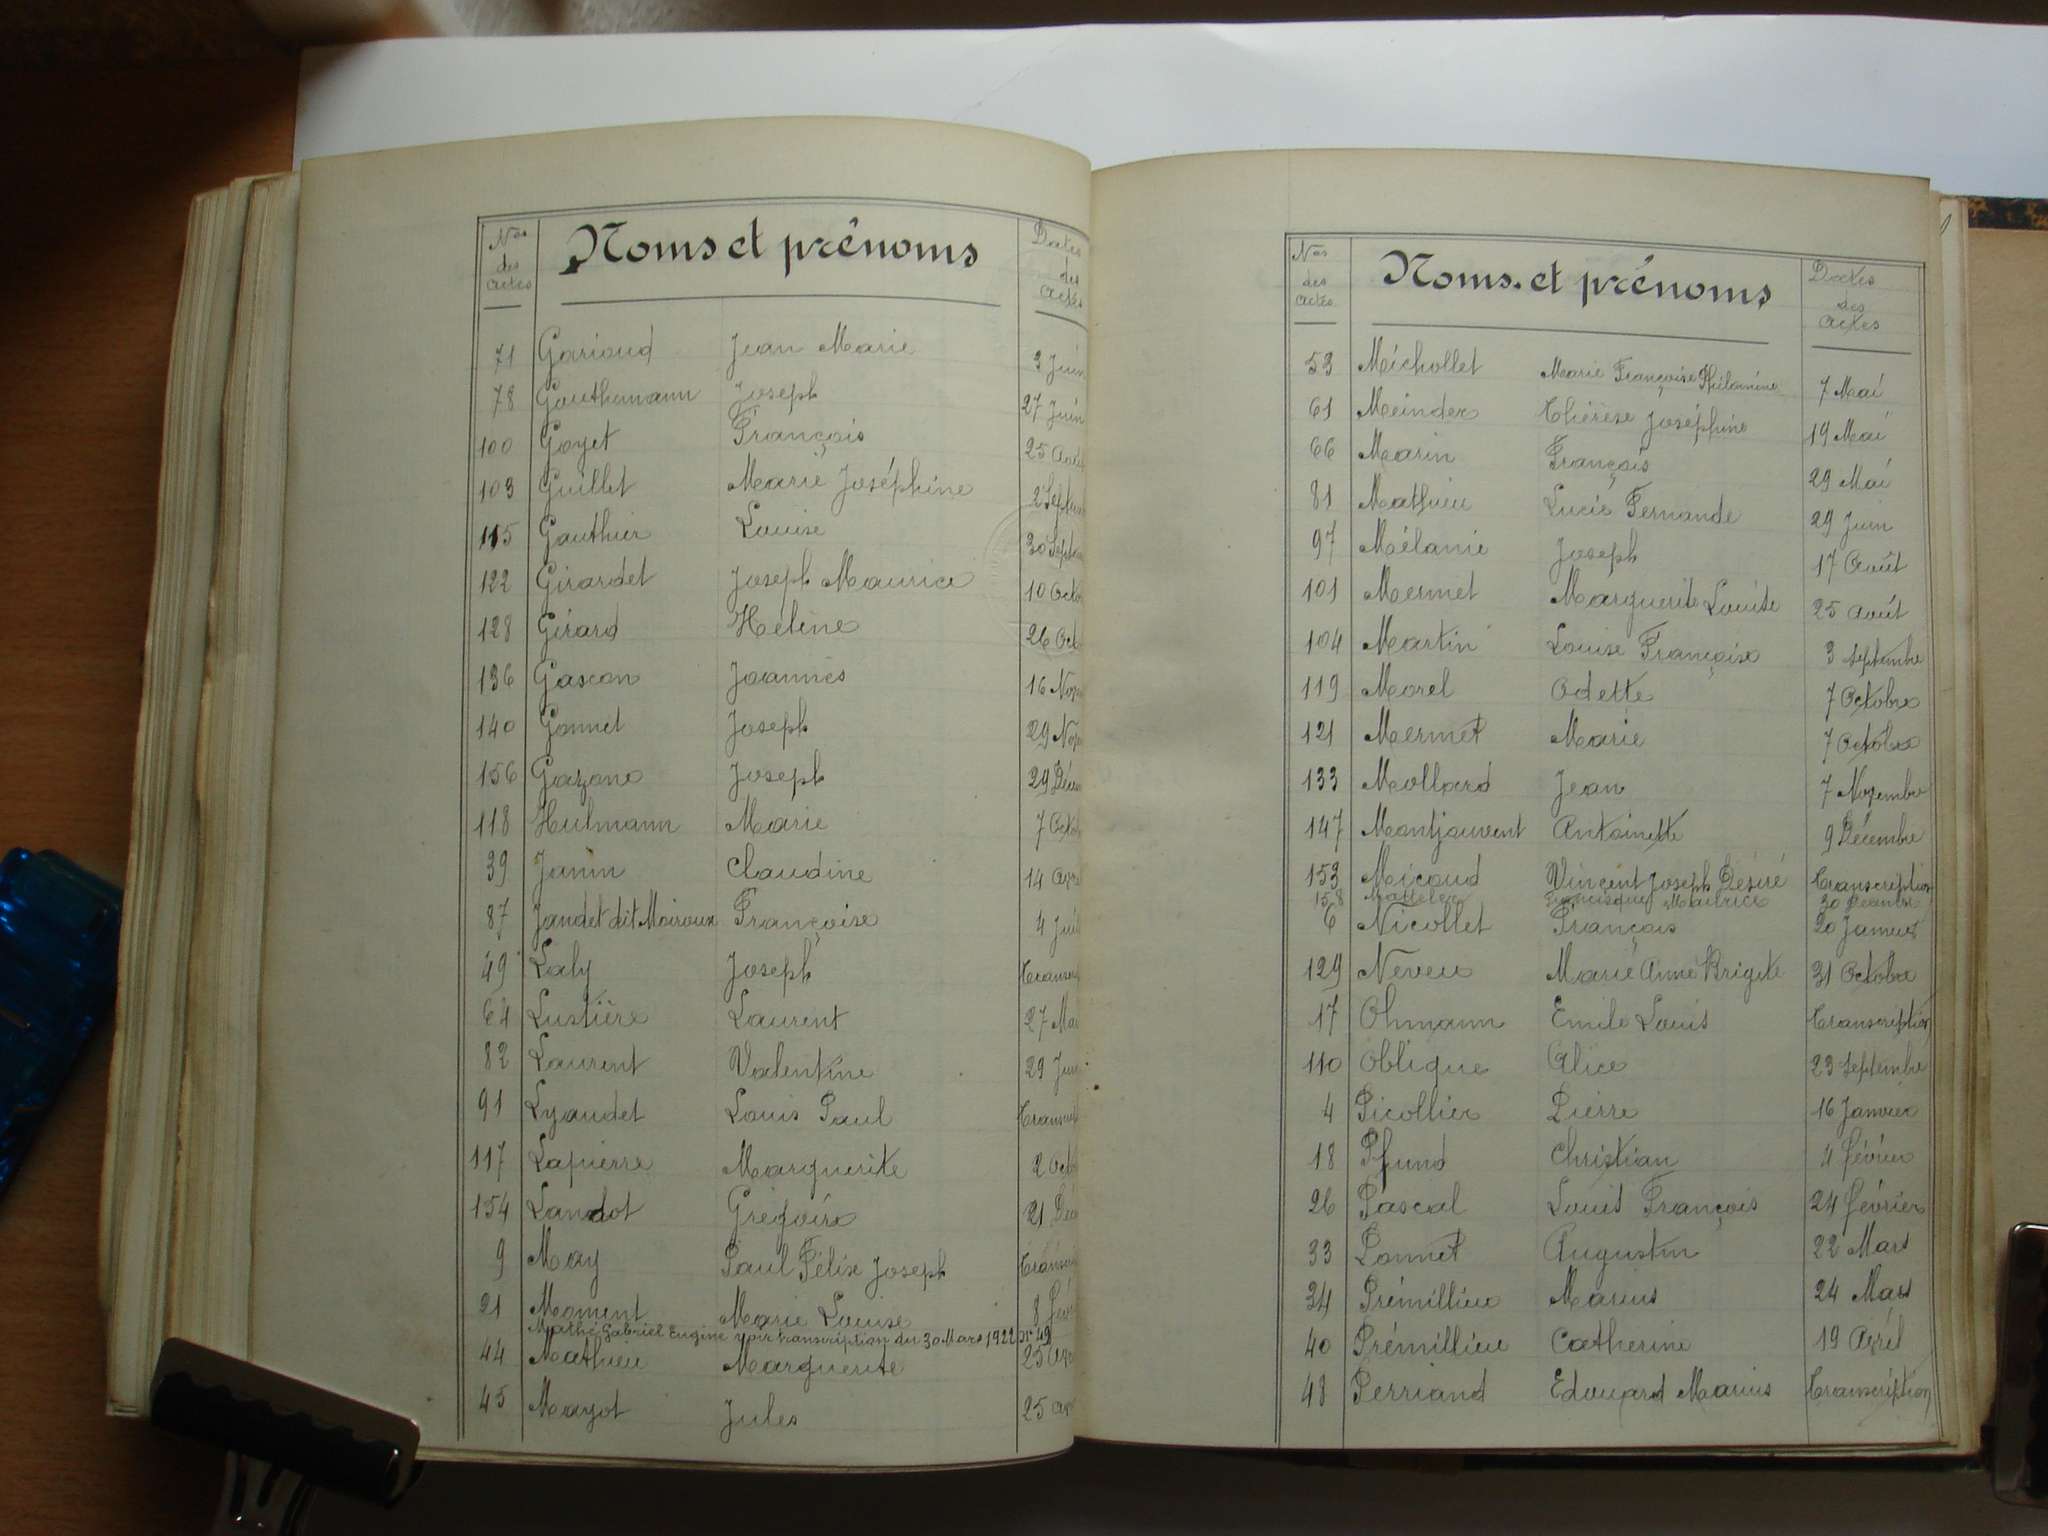 Nos des actes Noms et prénoms Dates des actes
71 Garioud Jean Marie 3 Juin
78 Gouthmann Joseph 27 Juin
100 Goyet François 25 Août
103 Guillet Marie Joséphine 2 Septem
115 Gauthier Louise 30 Septem
122 Girardet Joseph Maurice 10 Octo
128 Girard Hélène 26 Octo
136 Gascon Joannès 16 Nov
140 Gonnet Joseph 29 Nov
156 Gazano Joseph 29 Déce
118 Hulmann Marie 7 Octob
39 Janin Claudine 14 Avr
87 Jandet dit Moiroux Françoise 4 Juil
49 Laly Joseph Transcrip
64 Lustière Laurent 27 Mai
82 Laurent Valentine 29 Jui
91 Lyaudet Louis Paul Transcrip
117 Lapierre Marguerite 2 Octo
154 Landot Grégoire 21 Déc
9 May Paul Félix Joseph Transcr
21 Moment Marie Louise 8 Févr
Mathé Gabriel Eugène voir transcription du 30 Mars 1922 n° 49
44 Mathieu Marguerite 25 Avr
45 Mayot Jules 25 Avr
Nos des actes Noms et prénoms Dates des actes
53 Michollet Marie Françoise Philomène 7 Mai
61 Meinder Thérèse Joséphine 19 Mai
66 Marin François 29 Mai
81 Mathieu Lucie Fernande 29 Juin
97 Mélanie Joseph 17 Août
101 Mermet Marguerite Louise 25 Août
104 Martin Louise Françoise 3 Septembre
119 Morel Odette 7 Octobre
121 Mermet Marie 7 Octobre
133 Mollard Jean 7 Novembre
147 Montjouvent Antoinette 9 Décembre
153 Micoud Vincent Joseph Désiré Transcription
158 Francisque Maurice 30 Décembre
6 Nicollet François 20 Janvier
129 Neveu Marie Anne Brigite 31 Octobre
17 Ohmann Emile Louis Transcription
110 Oblique Alice 23 Septembre
4 Picollier Pierre 16 Janvier
18 Pfund Christian 4 Février
26 Pascal Louis François 24 Février
33 Ponnet Augustin 22 Mars
34 Prémillieu Marius 24 Mars
40 Prémillieu Catherine 19 Avril
48 Perriand Edouard Marius Transcription